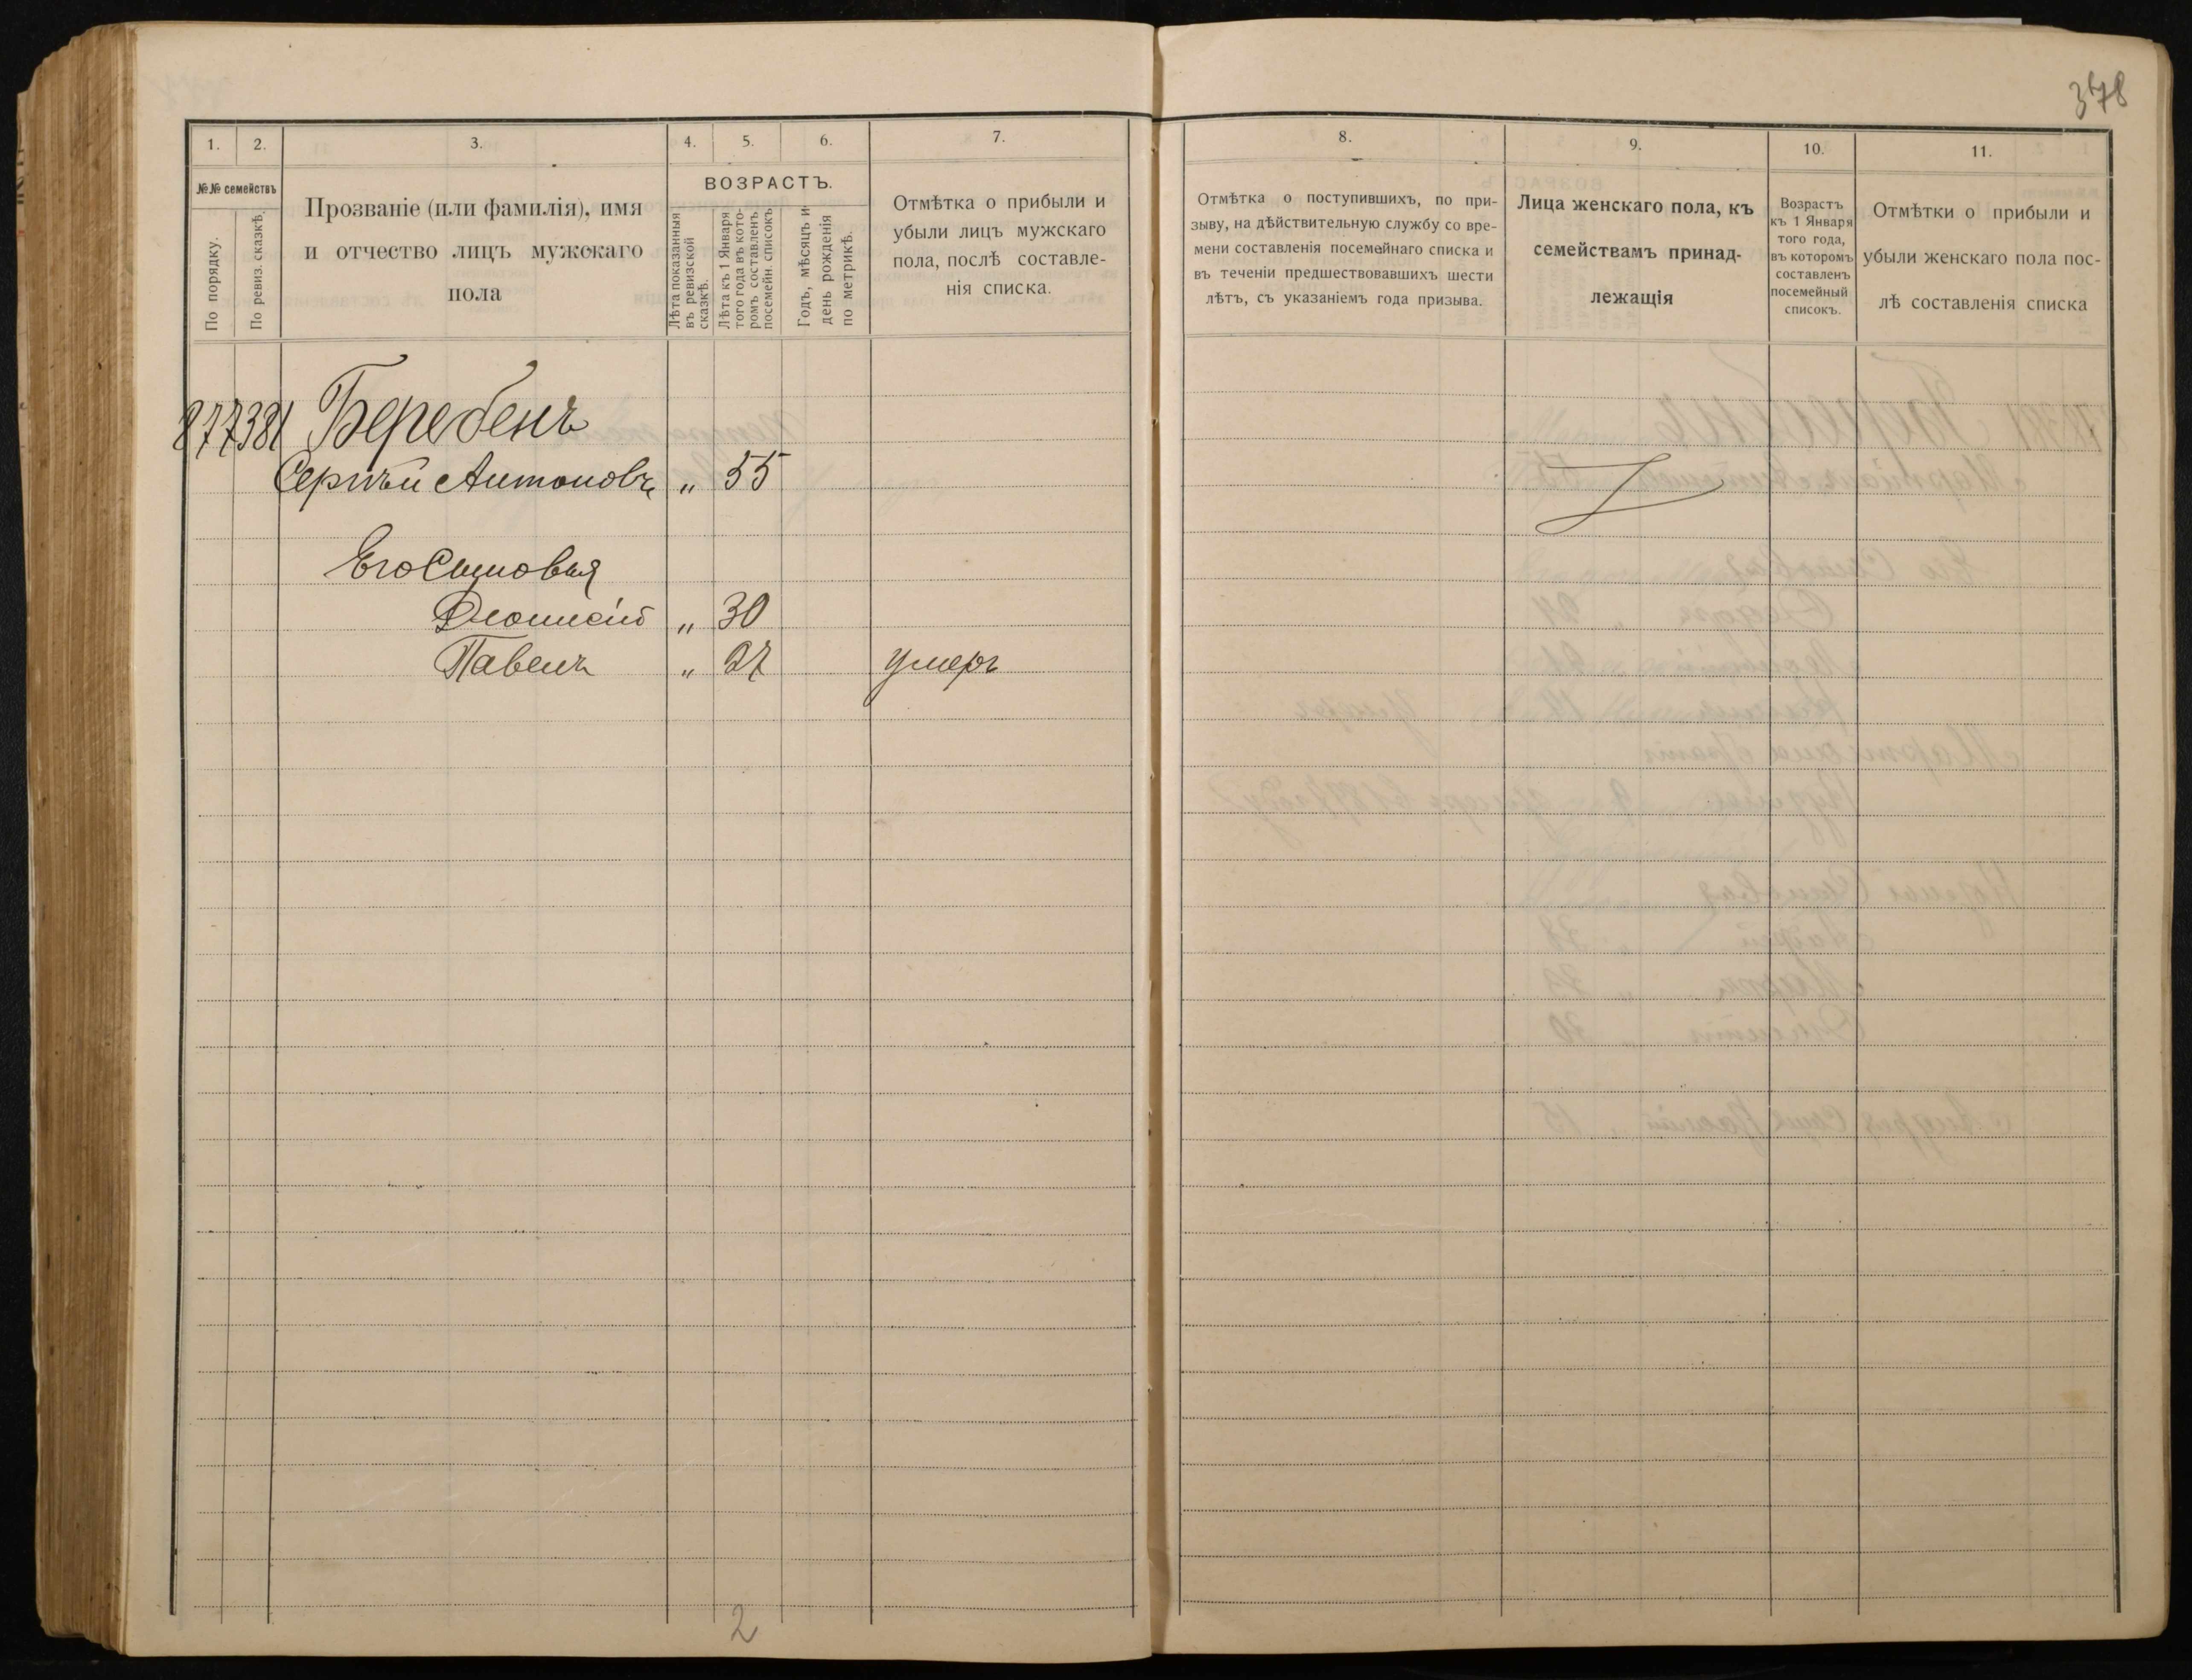 378
1.
2.
3.
4.
5.
6.
7.
№№ семействъ
По порядку.
По ревиз. сказкѣ.
Прозваніе (или фамилія), имя
и отчество лицъ мужскаго
пола
ВОЗРАСТЪ.
Лѣта показанныя
въ ревизской
сказкѣ.
Лѣта къ 1 Января
того года въ кото-
ромъ составленъ
посемейн. списокъ
Годъ, мѣсяцъ и
день рожденія
по метрикѣ.
Отмѣтка о прибыли и
убыли лицъ мужскаго
пола, послѣ составле-
нія списка.
8.
9.
10.
11.
Отмѣтка о поступившихъ, по при-
зыву, на дѣйствительную службу со вре-
мени составленія посемейнаго списка и
въ теченіи предшествовавшихъ шести
лѣтъ, съ указаніемъ года призыва.
Лица женскаго пола, къ
семействамъ принад-
лежащія
Возрастъ
къ 1 Января
того года,
въ которомъ
составленъ
посемейный
списокъ.
Отмѣтки о прибыли и
убыли женскаго пола пос-
лѣ составленія списка
877 381 Беребенъ
Сергѣй Антоновъ „ 55
Его Сыновья
Діонисій „ 30
Павелъ „ 27 умеръ
2